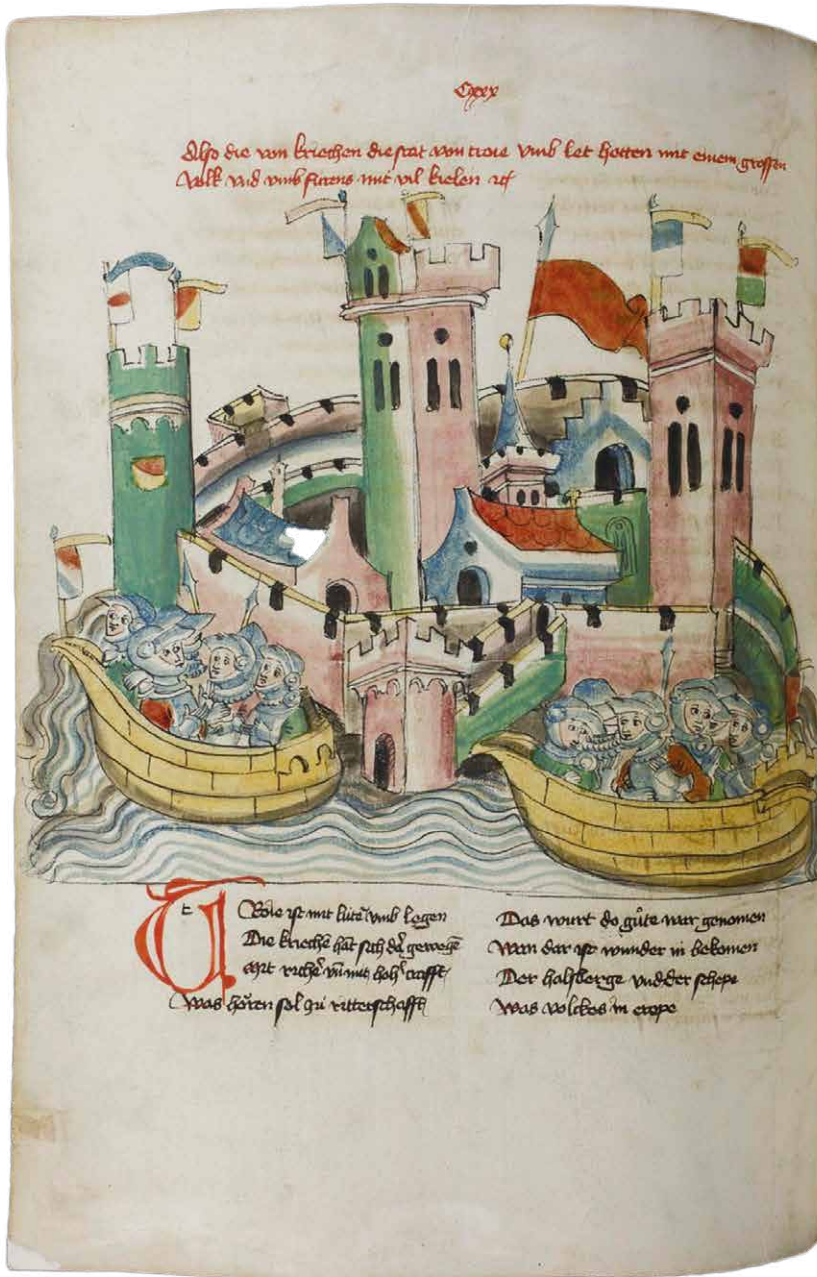 Cxxx
Also die von kriechen die stat von troie vmb let hotten mit einem grossen
Volk vnd vmb furens mit vil kielen
Troie ist mit lútẽ vmb legen
Die kriechẽ hãt sich dẽ gewegẽ
Mit richẽ vñ mit hoh' crafft
Was hòren sol zú ritterschafft
Das wurt do gúte war genomen
Wan dar ist wunder in bekomen
Der halsberge vnd der schepe
Was volckes in erope